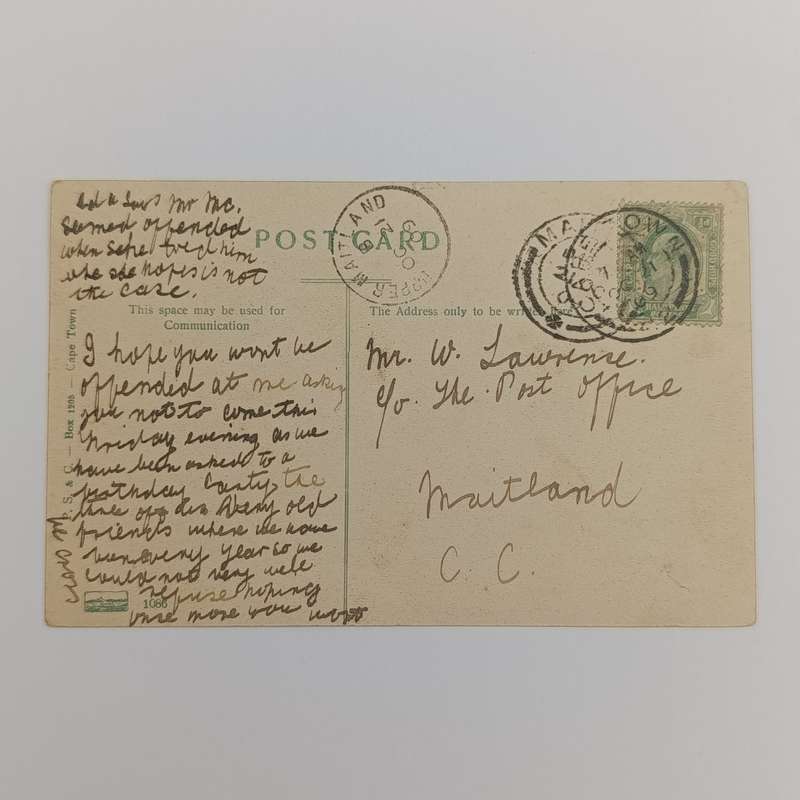 Mr Mc.
Seemed offended
when she told him
she hopes is not
the case.
POST CARD
UPPER MAITLAND
CAPE TOWN
This space may be used for
Communication
The Address only to be written here
I hope you wont be
offended at me asking
you not to come this
Friday evening as we
have been asked to a
birthday Party, the
very old
friends where we have
been every year so we
could not very well
refuse hoping
once more you wont
be cross
S. & C. — Box 1205 — Cape Town
1086
Mr. W. Lawrense.
c/o. The Post Office
Maitland
C. C.